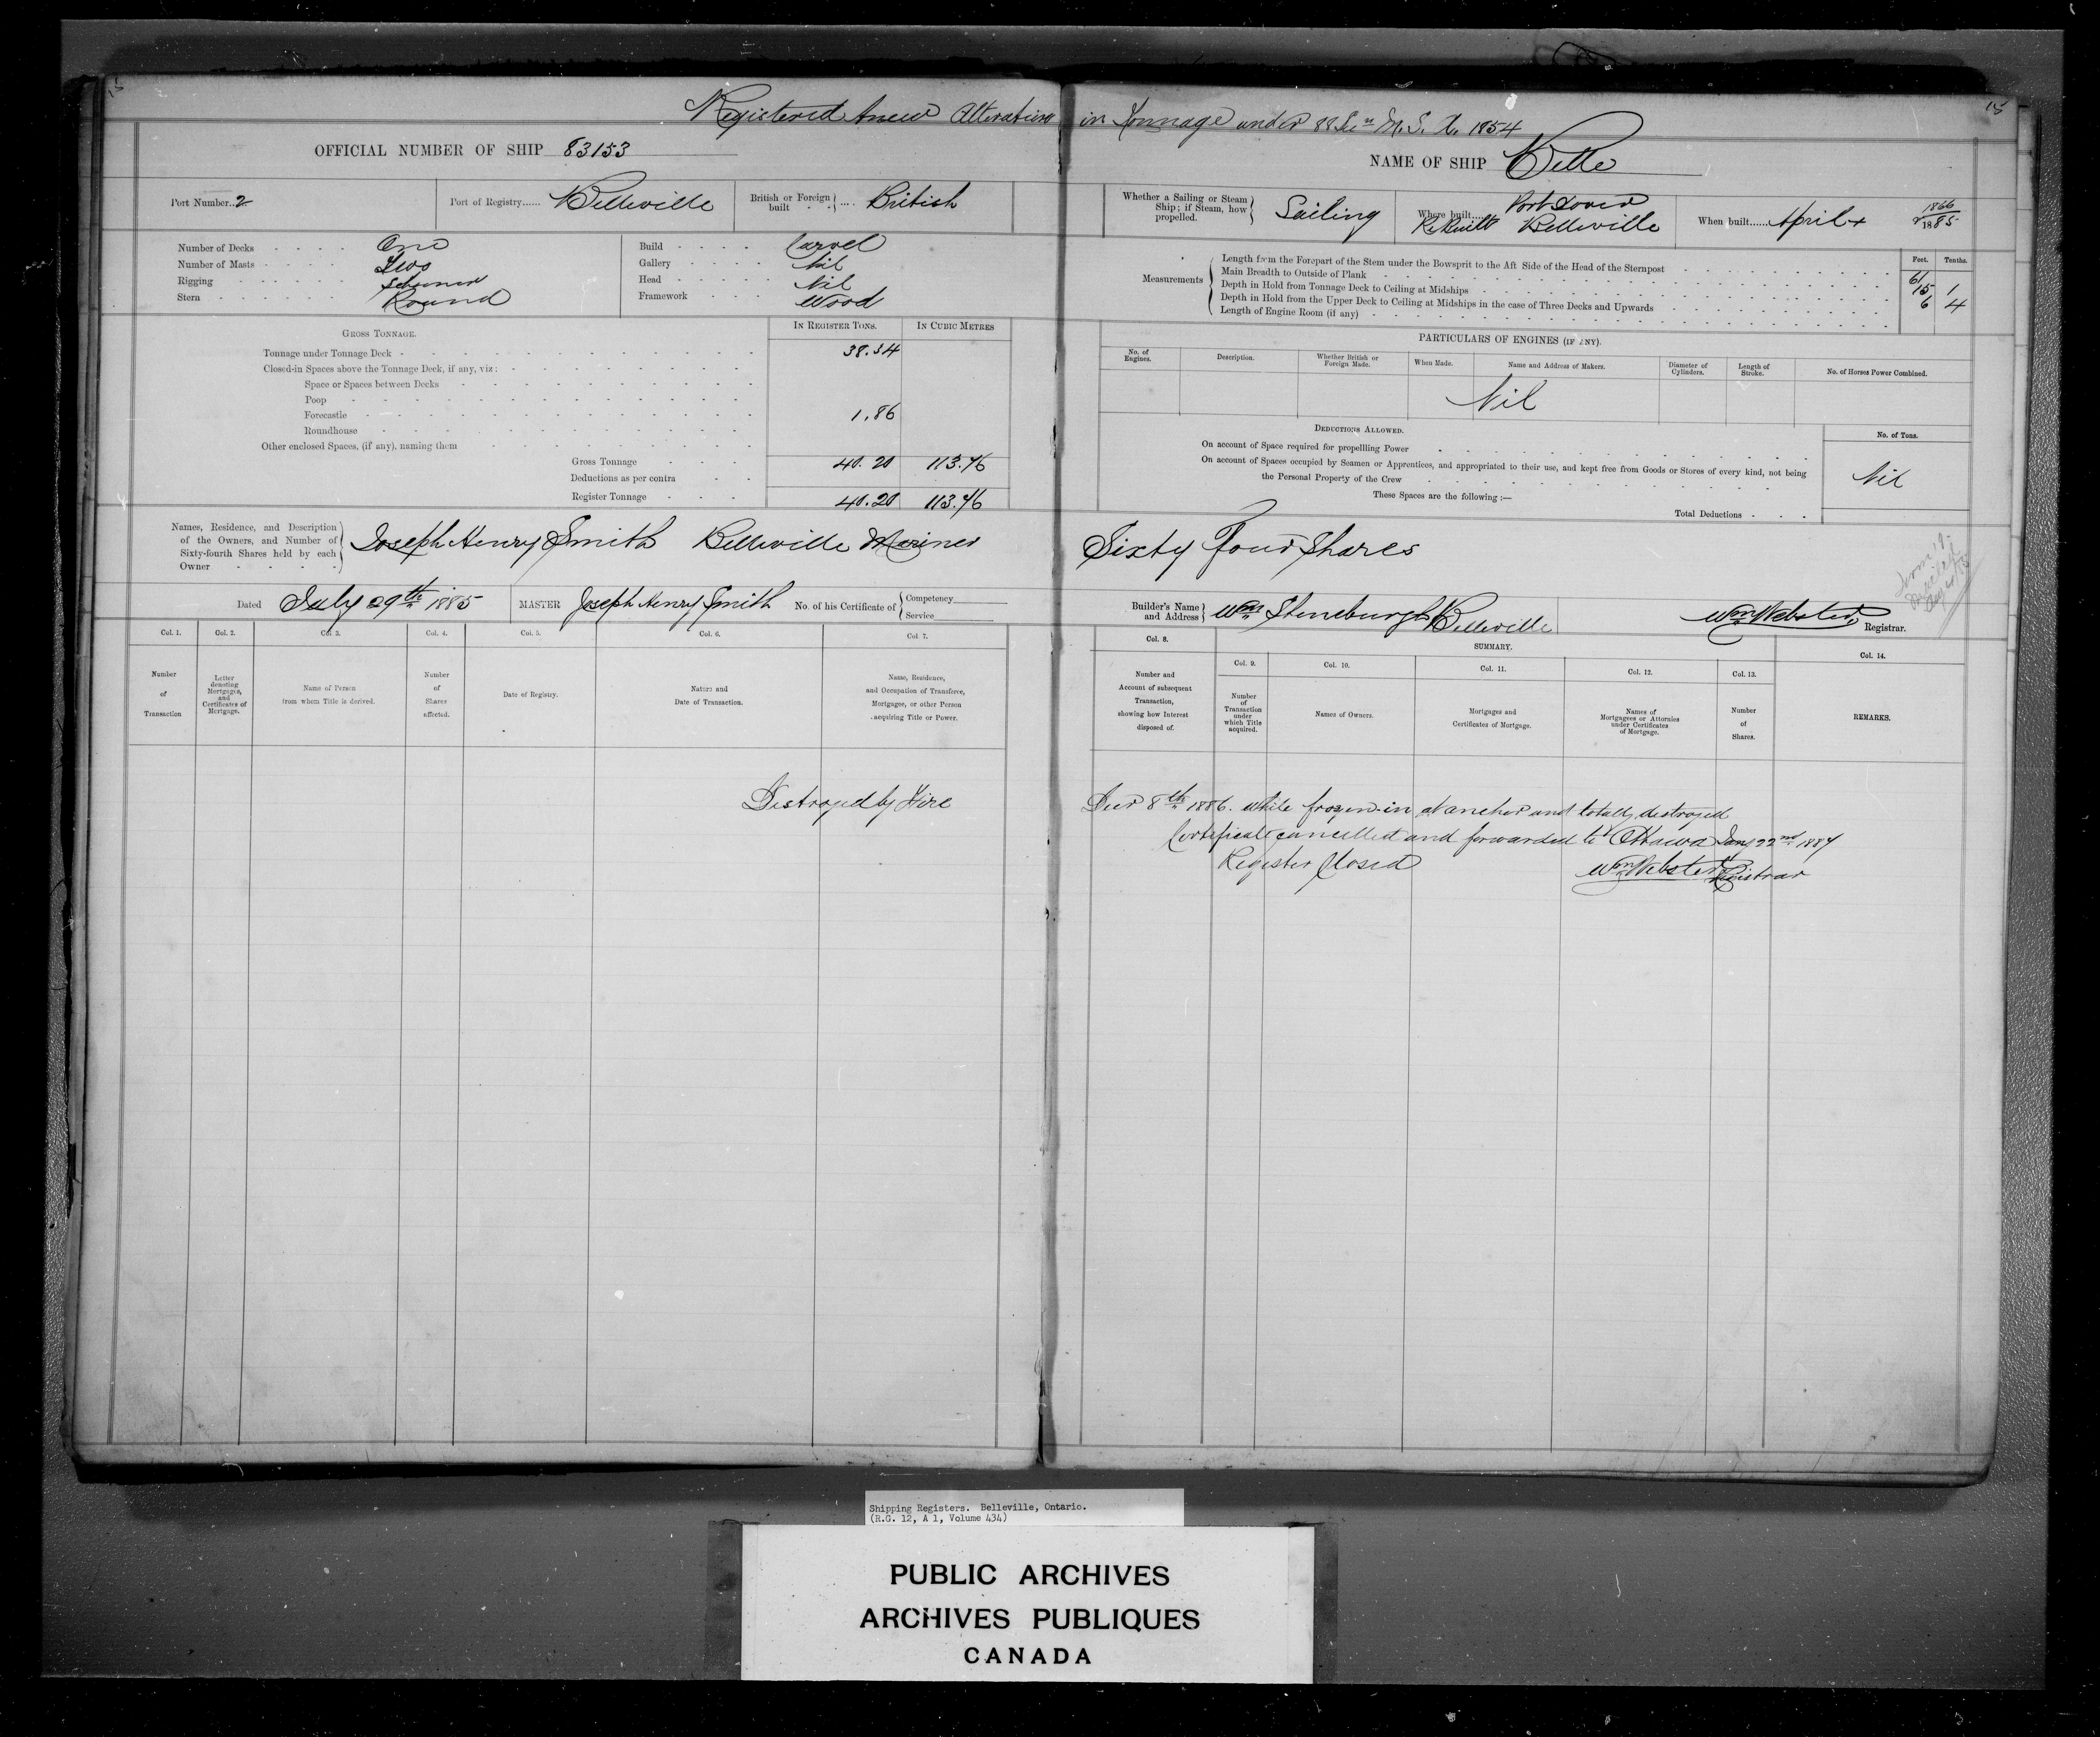 15
15
Registered Anew Alterations in Tonnage under 88 Secn M. S. A. 1854
OFFICIAL NUMBER OF SHIP 83153
NAME OF SHIP Belle
Port Number..2
Port of Registry...... Belleville
British or Foreign built .... British
Whether a Sailing or Steam Ship; if Steam, how propelled. Sailing
Where built..... Port Dover
ReBuilt Belleville
When built......April + 1866 & 1885
Number of Decks One
Number of Masts Two
Rigging Schooner
Stern Round
Build Carvel
Gallery Nil
Head Nil
Framework Wood
Measurements
Feet. Tenths.
Length from the Forepart of the Stem under the Bowsprit to the Aft Side of the Head of the Sternpost 61
Main Breadth to Outside of Plank 15 1
Depth in Hold from Tonnage Deck to Ceiling at Midships 6 4
Depth in Hold from the Upper Deck to Ceiling at Midships in the case of Three Decks and Upwards
Length of Engine Room (if any)
GROSS TONNAGE.
IN REGISTER TONS. IN CUBIC METRES
Tonnage under Tonnage Deck 38.34
Closed-in Spaces above the Tonnage Deck, if any, viz:
Space or Spaces between Decks
Poop
Forecastle 1.86
Roundhouse
Other enclosed Spaces, (if any), naming them
Gross Tonnage 40.20 113.76
Deductions as per contra
Register Tonnage 40.20 113.76
PARTICULARS OF ENGINES (IF ANY).
No. of Engines.
Description.
Whether British or Foreign Made.
When Made.
Name and Address of Makers.
Diameter of Cylinders.
Length of Stroke.
No. of Horses Power Combined.
Nil
DEDUCTIONS ALLOWED.
No. of Tons.
On account of Space required for propellling Power
On account of Spaces occupied by Seamen or Apprentices, and appropriated to their use, and kept free from Goods or Stores of every kind, not being
the Personal Property of the Crew
Nil
These Spaces are the following :—
Total Deductions
Names, Residence, and Description of the Owners, and Number of Sixty-fourth Shares held by each Owner
Joseph Henry Smith Belleville Mariner Sixty Four Shares
Dated July 29th 1885
MASTER Joseph Henry Smith
No. of his Certificate of Competency Service
Builder's Name and Address Wm Stoneburgh Belleville
Wm Webster Registrar.
Col. 1. Col. 2. Col. 3. Col. 4. Col. 5. Col. 6. Col. 7.
Number of Transaction
Letter denoting Mortgages, and Certificates of Mortgage.
Name of Person from whom Title is derived.
Number of Shares affected.
Date of Registry.
Nature and Date of Transaction.
Name, Residence, and Occupation of Transferee, Mortgagee, or other Person acquiring Title or Power.
Col. 8.
SUMMARY.
Col. 9. Col. 10. Col. 11. Col. 12. Col. 13. Col. 14.
Number and Account of subsequent Transaction, showing how Interest disposed of.
Number of Transaction under which Title acquired.
Names of Owners.
Mortgages and Certificates of Mortgage.
Names of Mortgagees or Attornies under Certificates of Mortgage.
Number of Shares.
REMARKS.
Destroyed by Fire Decr 8th 1886. while frozen in at anchor and totally destroyed
Certificate cancelled and forwarded to Ottawa Jany 22nd 1887
Register Closed
Wm Webster Registrar
Shipping Registers. Belleville, Ontario.
(R.G. 12, A 1, Volume 434)
PUBLIC ARCHIVES
ARCHIVES PUBLIQUES
CANADA